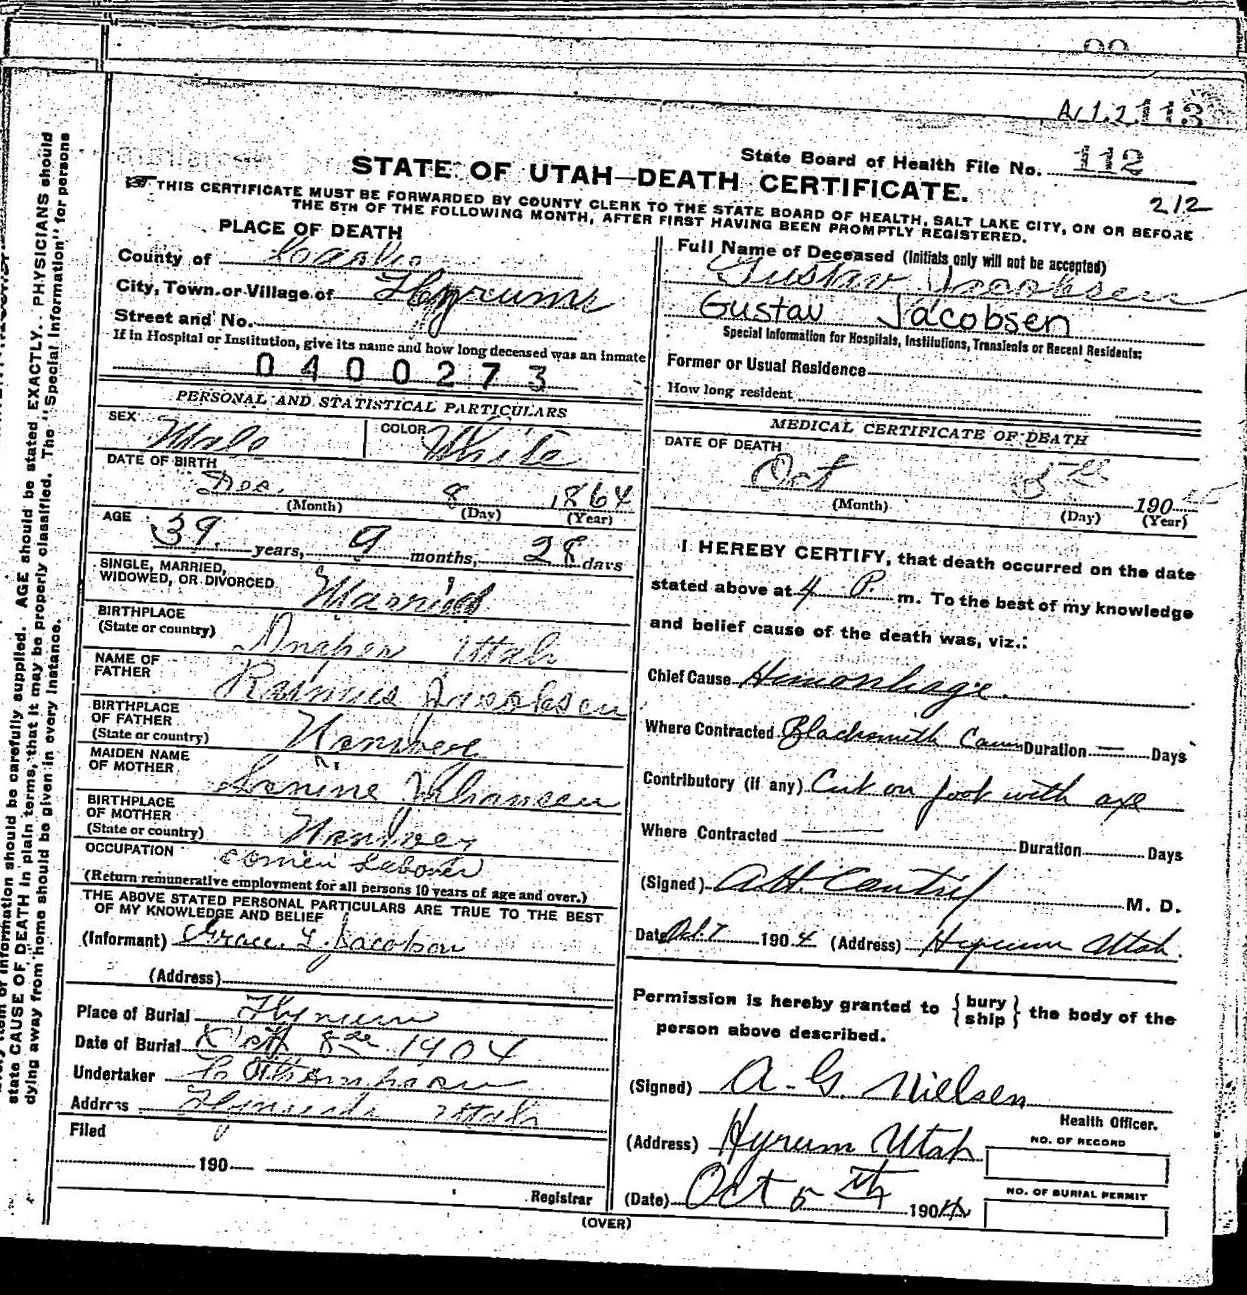 113
State Board of Health File No. 112
STATE OF UTAH—DEATH CERTIFICATE.
212
THIS CERTIFICATE MUST BE FORWARDED BY COUNTY CLERK TO THE STATE BOARD OF HEALTH, SALT LAKE CITY, ON OR BEFORE
THE 5TH OF THE FOLLOWING MONTH, AFTER FIRST HAVING BEEN PROMPTLY REGISTERED.
PLACE OF DEATH
County of
City, Town or Village of Hyrum
Street and No.
If in Hospital or Institution, give its name and how long deceased was an inmate
0400273
PERSONAL AND STATISTICAL PARTICULARS
SEX Male COLOR White
DATE OF BIRTH
Dec. 8 1864
(Month) (Day) (Year)
AGE
39 years, 9 months, 28 days
SINGLE, MARRIED,
WIDOWED, OR DIVORCED Married
BIRTHPLACE
(State or country) Utah
NAME OF
FATHER Rasmus Jacobsen
BIRTHPLACE
OF FATHER
(State or country)
MAIDEN NAME
OF MOTHER
BIRTHPLACE
OF MOTHER
(State or country)
OCCUPATION Labover
(Return remunerative employment for all persons 10 years of age and over.)
THE ABOVE STATED PERSONAL PARTICULARS ARE TRUE TO THE BEST
OF MY KNOWLEDGE AND BELIEF
(Informant) Grace L. Jacobsen
(Address)
Place of Burial Hyrum
Date of Burial Oct 8 1904
Undertaker
Address Utah
Filed
190
Registrar
Full Name of Deceased (Initials only will not be accepted)
Gustav Jacobsen
Gustav Jacobsen
Special Information for Hospitals, Institutions, Transients or Recent Residents:
Former or Usual Residence
How long resident
MEDICAL CERTIFICATE OF DEATH
DATE OF DEATH
Oct 5 190
(Month) (Day) (Year)
I HEREBY CERTIFY, that death occurred on the date
stated above at 4 P. m. To the best of my knowledge
and belief cause of the death was, viz.:
Chief Cause Hemorrhage
Where Contracted Blacksmith Duration — Days
Contributory (if any) Cut on foot with axe
Where Contracted — Duration Days
(Signed) M. D.
Date Oct 7 1904 (Address) Hyrum Utah.
Permission is hereby granted to {bury
ship} the body of the
person above described.
(Signed) A. G. Nielsen
Health Officer.
(Address) Hyrum Utah
NO. OF RECORD
(Date) Oct 5th 1904
NO. OF BURIAL PERMIT
(OVER)
information should be carefully supplied. AGE should be stated EXACTLY. PHYSICIANS should
state CAUSE OF DEATH in plain terms, that it may be properly classified. The "Special Information" for persons
dying away from home should be given in every instance.